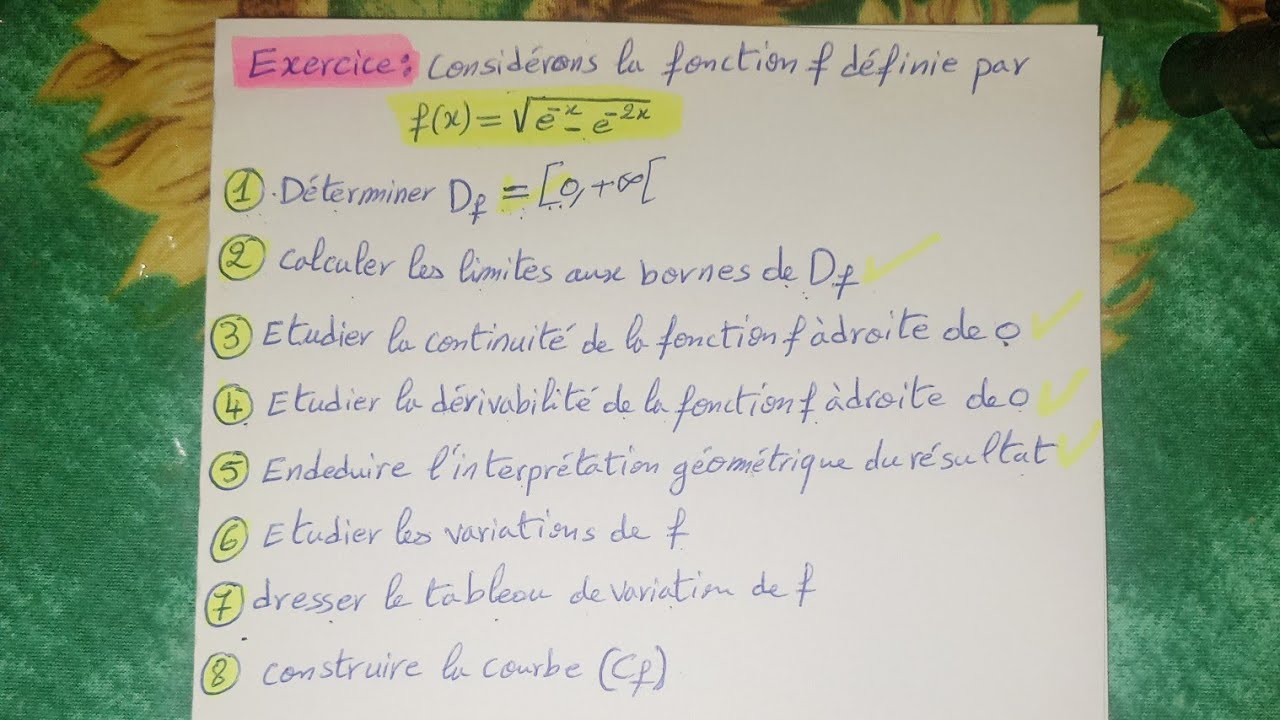 Exercice: Considérons la fonction f définie par
f(x) = √e⁻ˣ - e⁻²ˣ
① Déterminer Df = [0, +∞[
② Calculer les limites aux bornes de Df
③ Etudier la continuité de la fonction f à droite de 0
④ Etudier la dérivabilité de la fonction f à droite de 0
⑤ Endeduire l'interprétation géométrique du résultat
⑥ Etudier les variations de f
⑦ dresser le tableau de variation de f
⑧ construire la courbe (Cf)